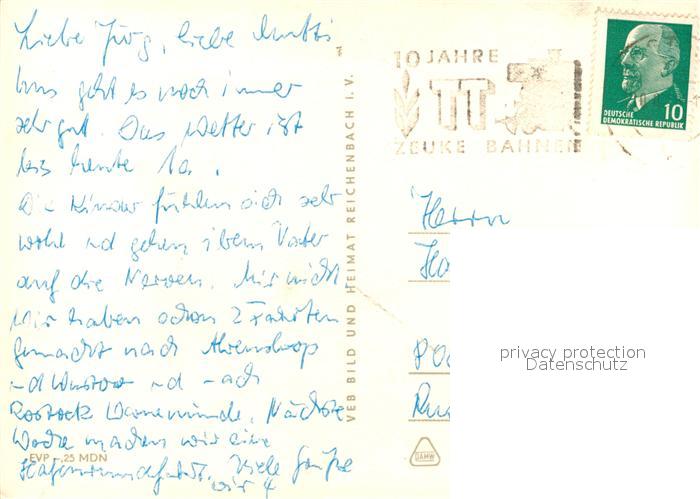 Liebe Jürg, liebe Mutti
uns geht es noch immer
sehr gut. Das Wetter ist
bis heute 1a.
Die Kinder fühlen sich sehr
wohl und gehen ihrem Vater
auf die Nerven. Mir nicht
Wir haben schon 2 Fahrten
gemacht nach Ahrenshoop
und Wustrow und nach
Rostock Warnemünde. Nächste
Woche machen wir eine
Hafenrundfahrt. Viele Grüße
wir 4
EVP -,25 MDN
VEB BILD UND HEIMAT REICHENBACH I. V.
10 JAHRE
TT
ZEUKE BAHNEN
DEUTSCHE
DEMOKRATISCHE REPUBLIK
10
Herrn
privacy protection
Datenschutz
DAMW